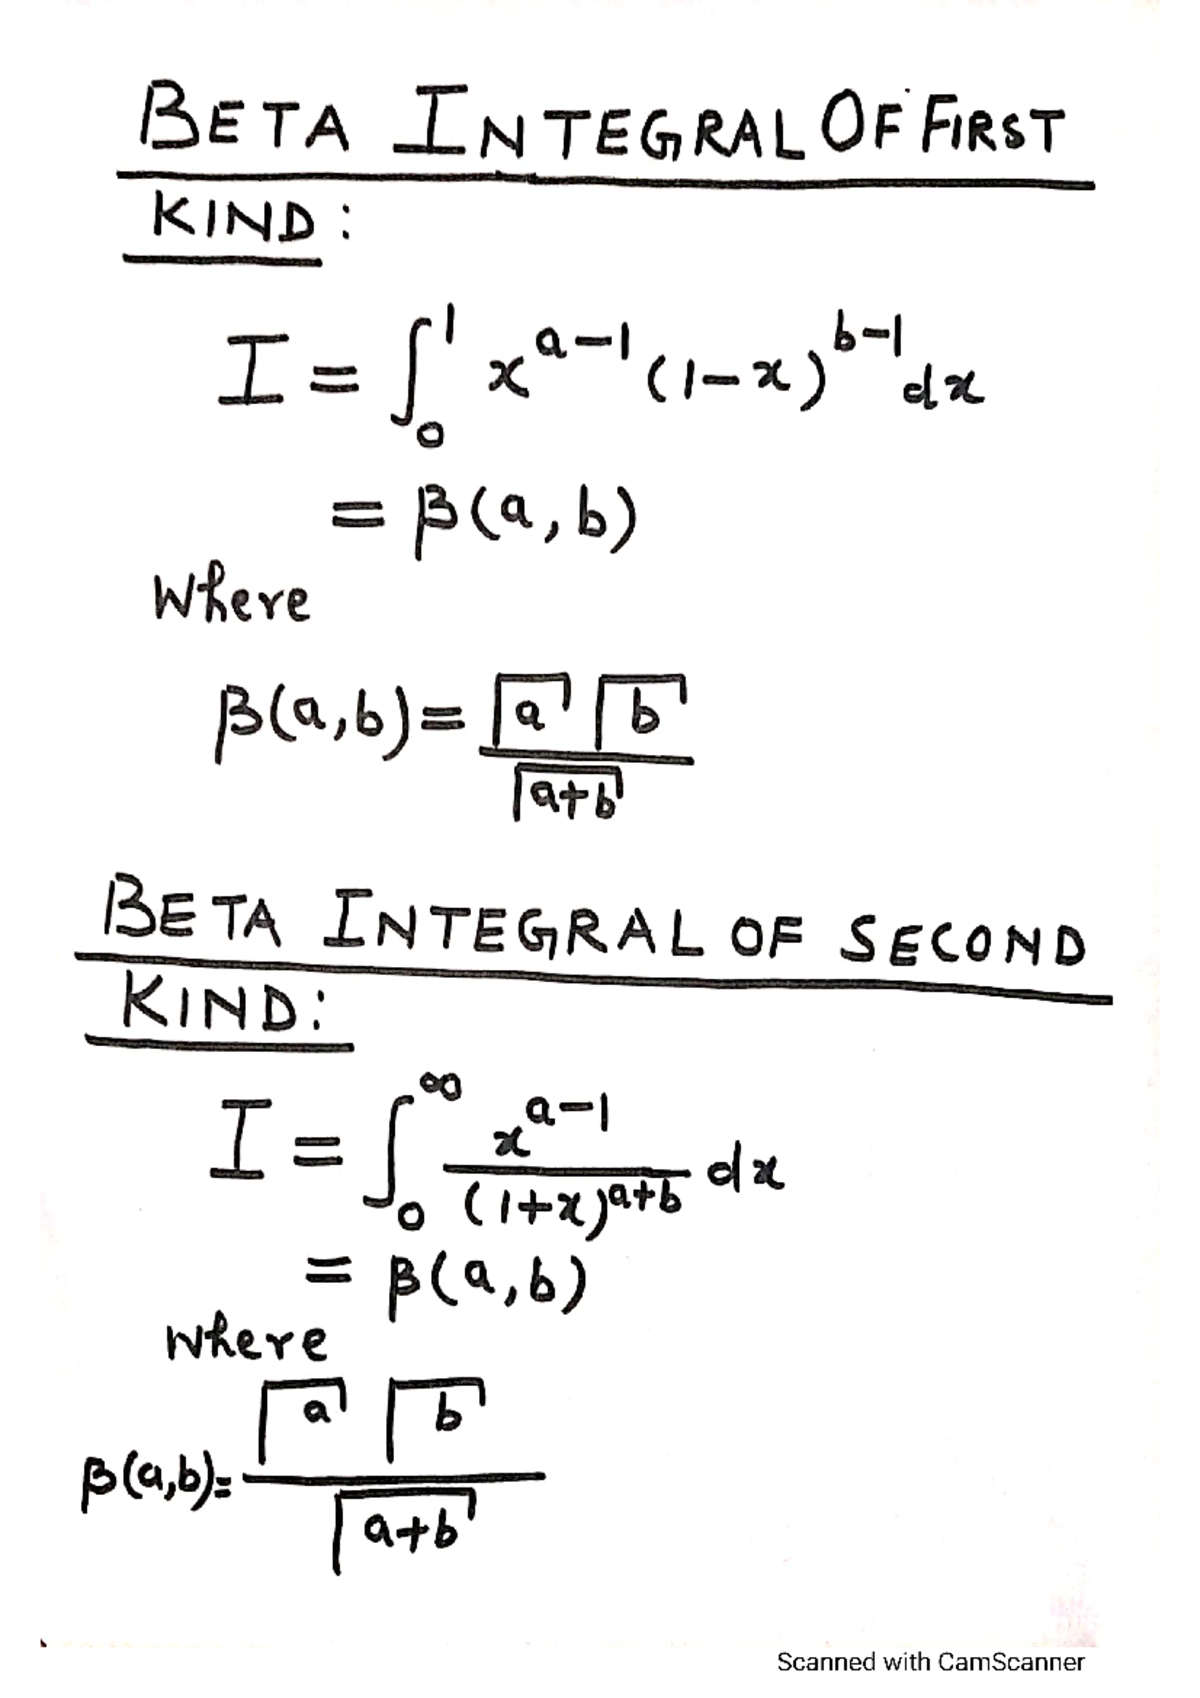 BETA INTEGRAL OF FIRST
KIND:
I = ∫₀¹ x^(a-1) (1-x)^(b-1) dx
= β(a,b)
Where
β(a,b) = Γa Γb / Γa+b
BETA INTEGRAL OF SECOND
KIND:
I = ∫₀^∞ x^(a-1) / (1+x)^(a+b) dx
= β(a,b)
Where
β(a,b) = Γa Γb / Γa+b
Scanned with CamScanner